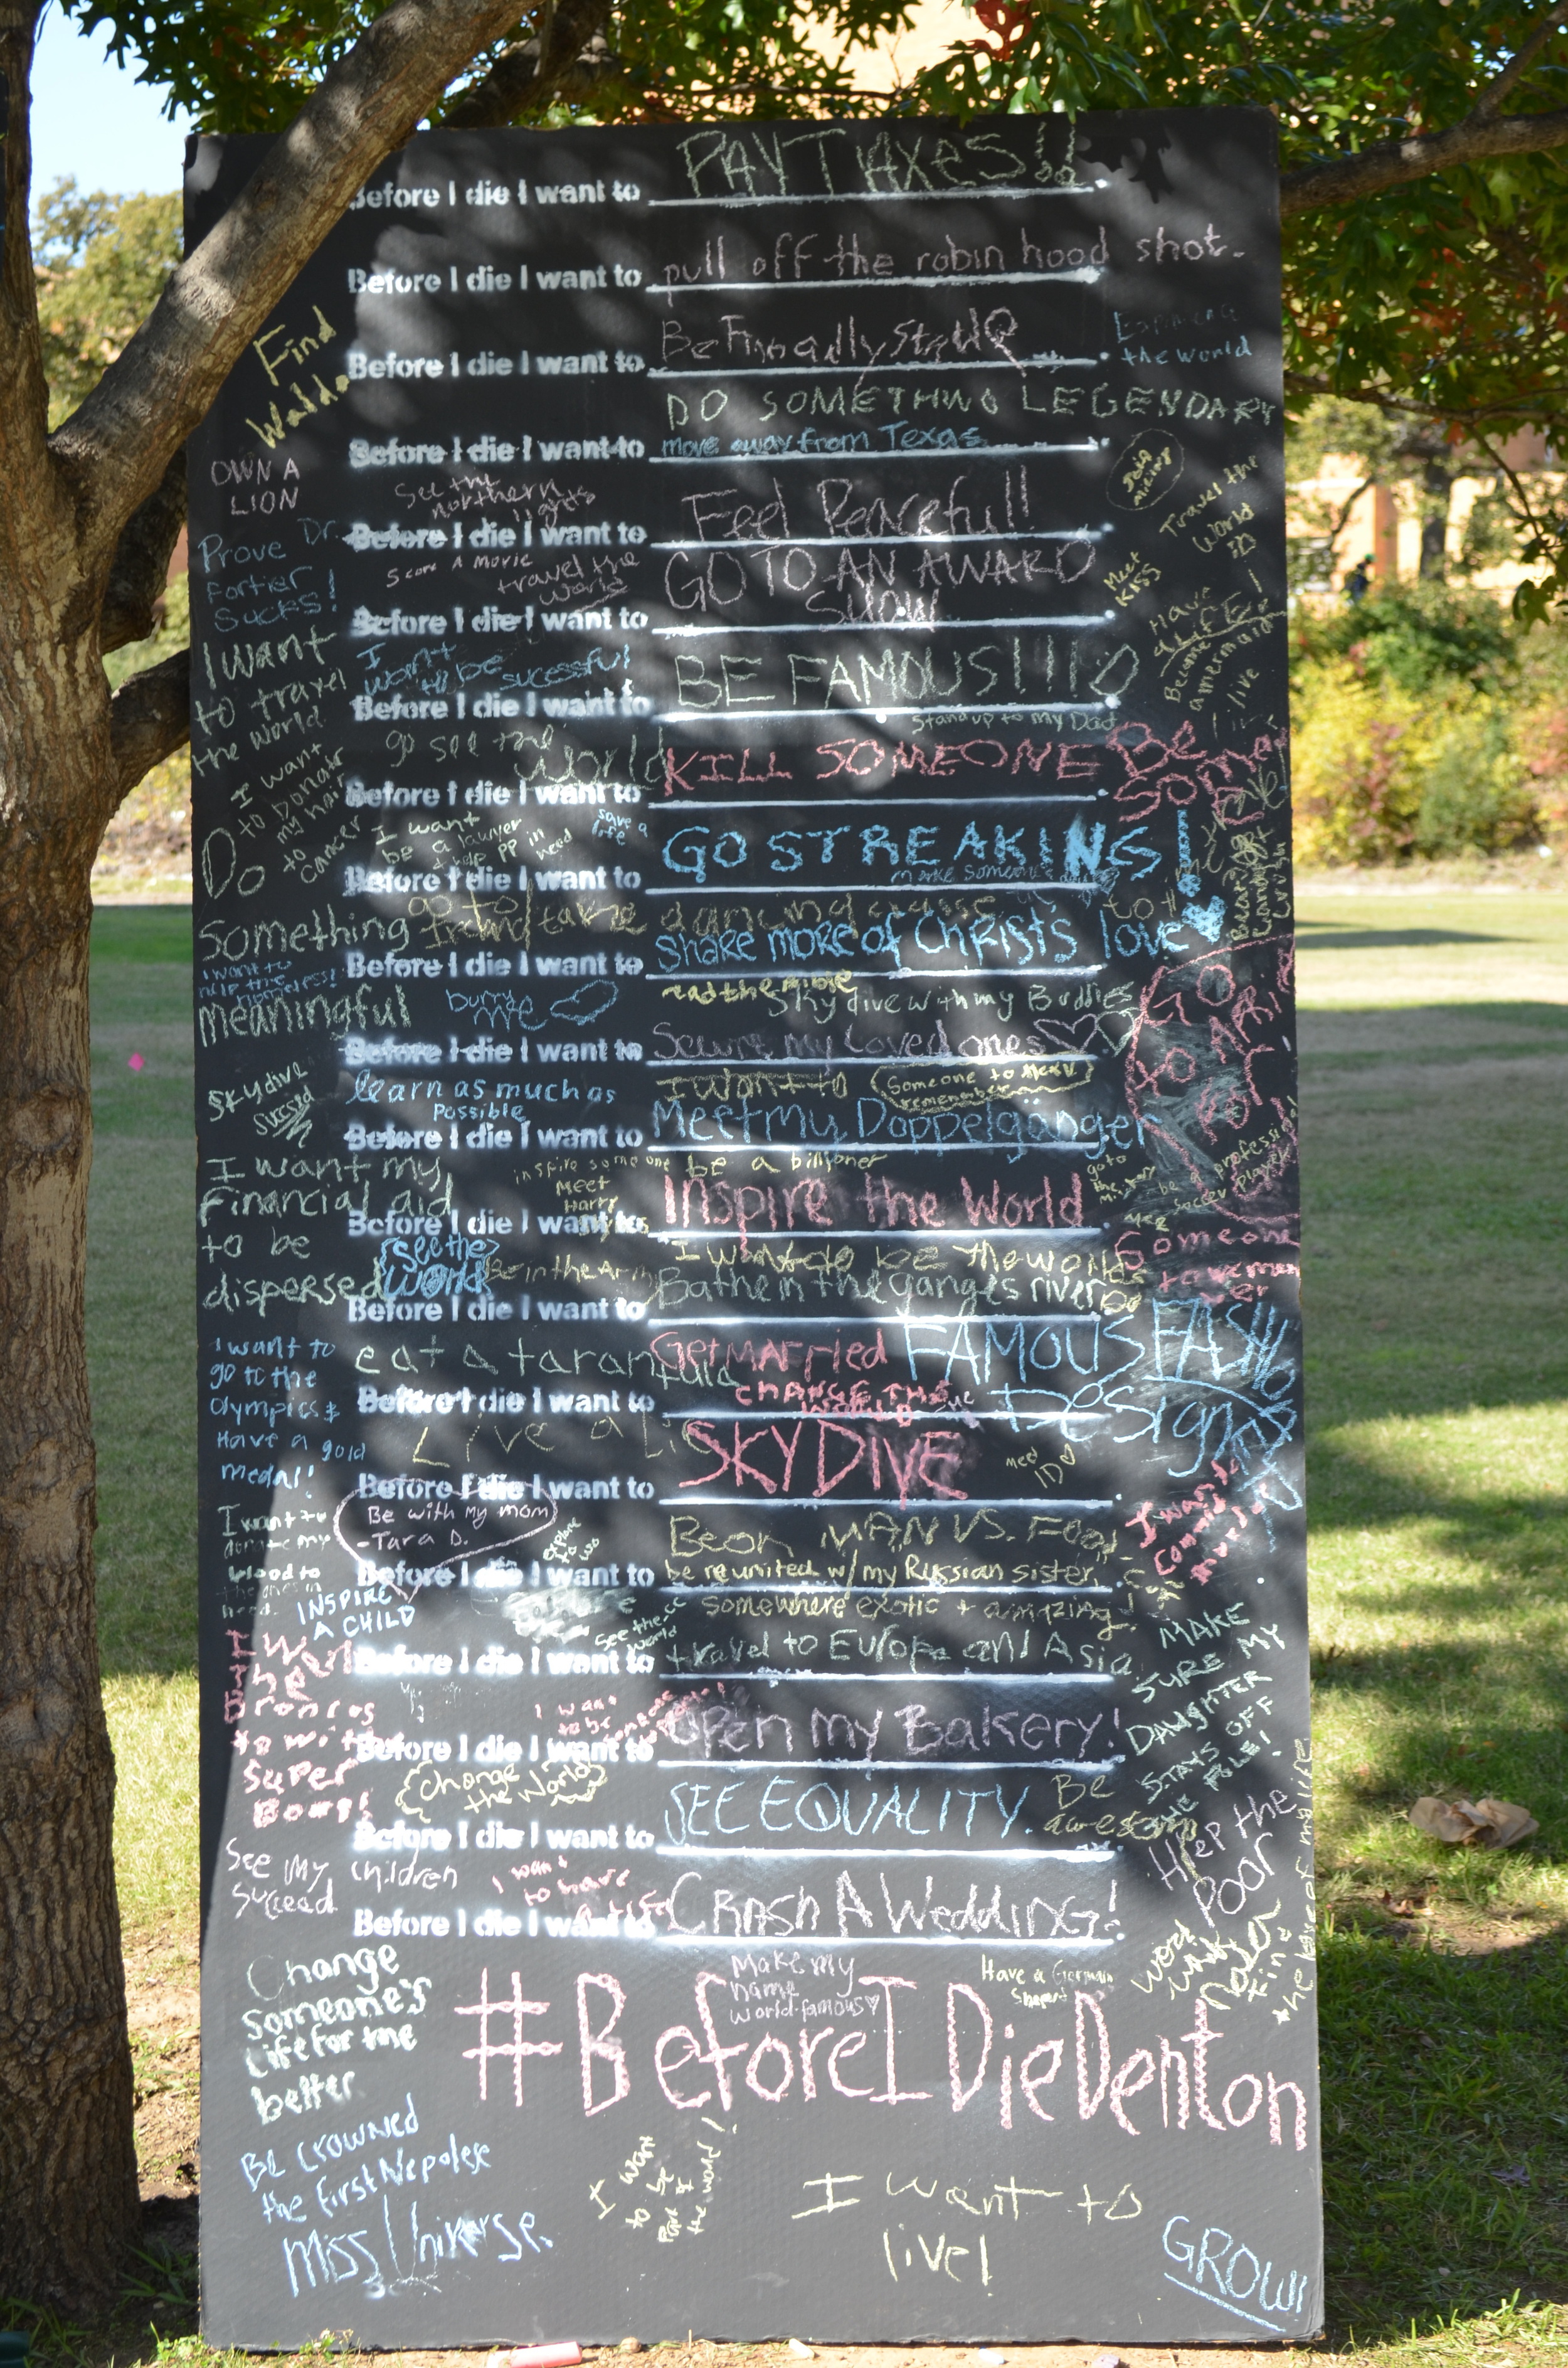 Before I die I want to PAY TAXES!!
Before I die I want to pull off the robin hood shot.
Find
Waldo
Before I die I want to Be
the world
DO SOMETHING LEGENDARY
Before I die I want to move away from Texas
OWN A
LION
See the
northern
lights
Travel the
World
Before I die I want to Feel Peaceful!!
Prove Dr.
Fortier
Sucks!
Score A Movie
travel the
world
Meet
KISS
Before I die I want to GO TO AN AWARD
SHOW
I want
to travel
the World
I
want
to be
sucessful
Have
Become a
mermaid
live
Before I die I want to BE FAMOUS!!!!
Stand up to my Dad
go see the
world
Before I die I want to KILL SOMEONE
Be
I want
to Donate
my hair
to
cancer
I want
be a lawyer
& help PP in
need
save a
life
Before I die I want to GO STREAKING!
make someone's
Do
something
meaningful
go to
take dancing classe
Before I die I want to Share more of Christ's love
I want to
help the
homeless!
burry
me
read the Bible
Sky dive with my Buddies
Before I die I want to Secure my Loved ones
GO
TO
skydive
learn as much as
possible
I want to
Someone to
remember
Before I die I want to Meet my Doppelganger
I want my
Financial aid
to be
dispersed
inspire someone
Meet
Harry
be a billioner
go to
be a professional
soccer player
Before I die I want to Inspire the World
someone
see the
World
Be in the Army
I want to be the worlds
Before I die I want to Bathe in the ganges river
FAMOUS FASHIO
Designer
I want to
go to the
olympics &
Have a gold
medal!
eat a tarantula
Get Married
Before I die I want to CHANGE THE
WORLD
Live a Li
Before I die I want to SKYDIVE
Meet
1D
I want to
commit
murder
I want to
donate my
blood to
the ones in
need.
Be with my mom
-Tara D.
Be on MAN VS. Food
Before I die I want to be reunited w/ my Russian sister,
INSPIRE
A CHILD
somewhere exotic + amazing!
See the
world
Before I die I want to travel to Europe and Asia
MAKE
SURE MY
DAUGHTER
STAYS OFF
THE POLE!
I Wan
the
Broncos
to win
Super
Bowl!
I want
to be
Before I die I want to Open my Bakery!
Change
the World
Be
awesome
Before I die I want to SEE EQUALITY.
Help the
Poor
See My children
Succeed
I want
to have
a life
Before I die I want to Crash A Wedding!
Find
the love of my life
Change
someone's
Life for the
better
Make my
name
world-famous
Have a German
#BeforeIDieDenton
Be crowned
the first Nepalese
Miss Universe.
I want
to be
the world!
I want to
live!
GROW!